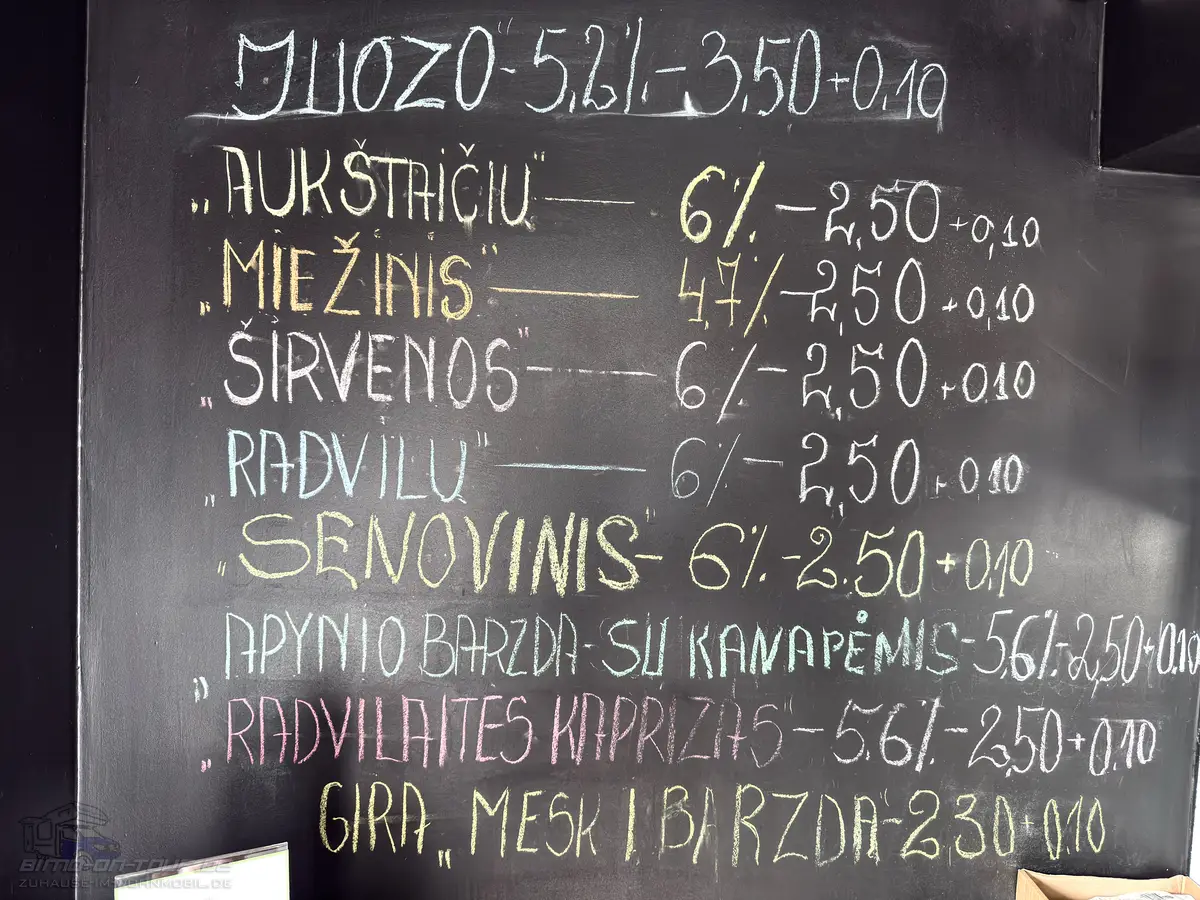 JUOZO" - 5,2% - 3.50 + 0.10
„AUKŠTAIČIŲ" — 6% - 2,50 + 0,10
„MIEŽINIS" — 4,7% - 2,50 + 0,10
„ŠIRVENOS" — 6% - 2,50 + 0,10
„RADVILŲ" — 6% - 2,50 + 0,10
„SENOVINIS" - 6% - 2.50 + 0.10
„APYNIO BARZDA - SU KANAPĖMIS - 5.6% - 2,50 + 0.10
„RADVILAITĖS KAPRIZAS" - 5.6% - 2,50 + 0.10
GIRA „MESK I BARZDA" - 2 30 + 0.10
BIMO-ON-TOUR.DE
ZUHAUSE-IM-WOHNMOBIL.DE